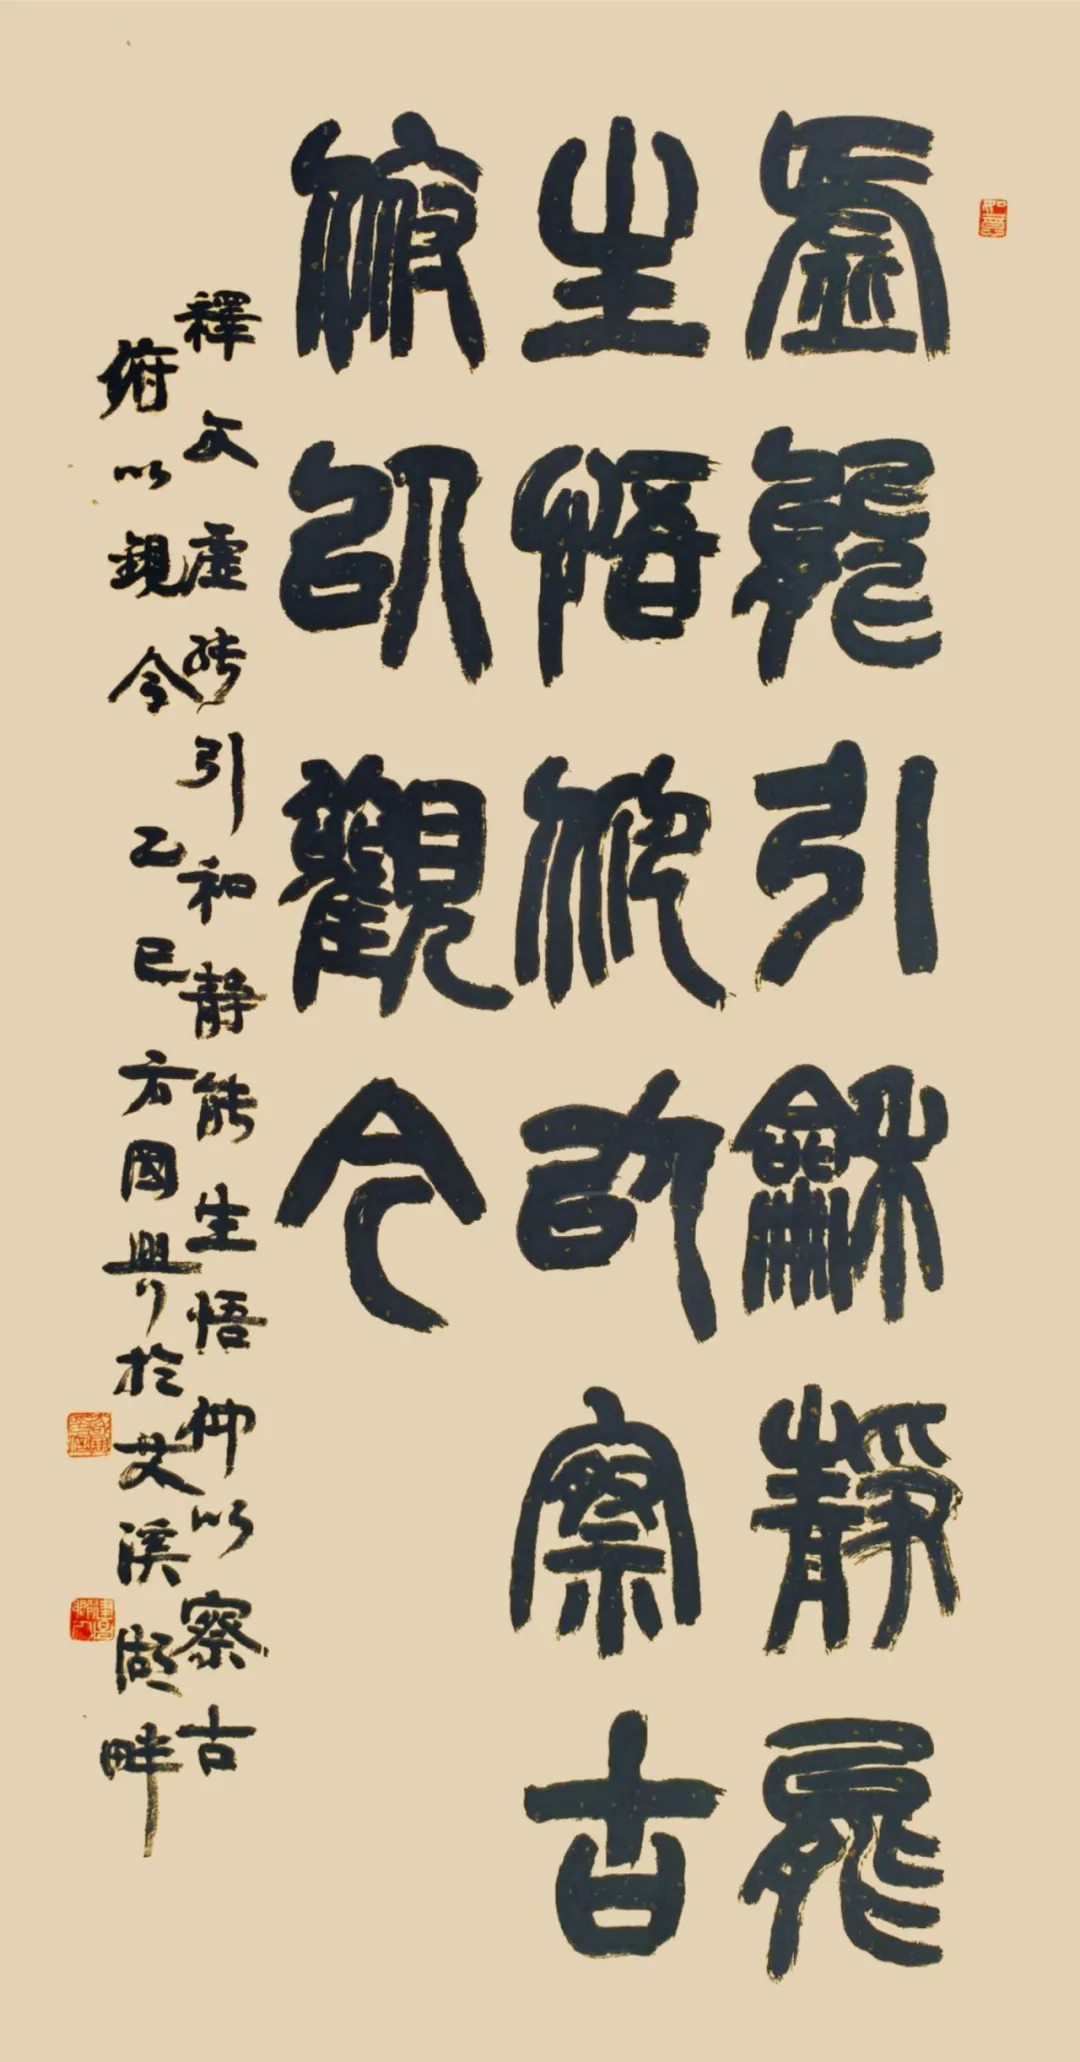 虛能引龢靜能
生悟仰以察古
俯以觀今
釋文虛能引和靜能生悟仰以察古
俯以觀今 乙巳方國興於艾溪湖畔
如意